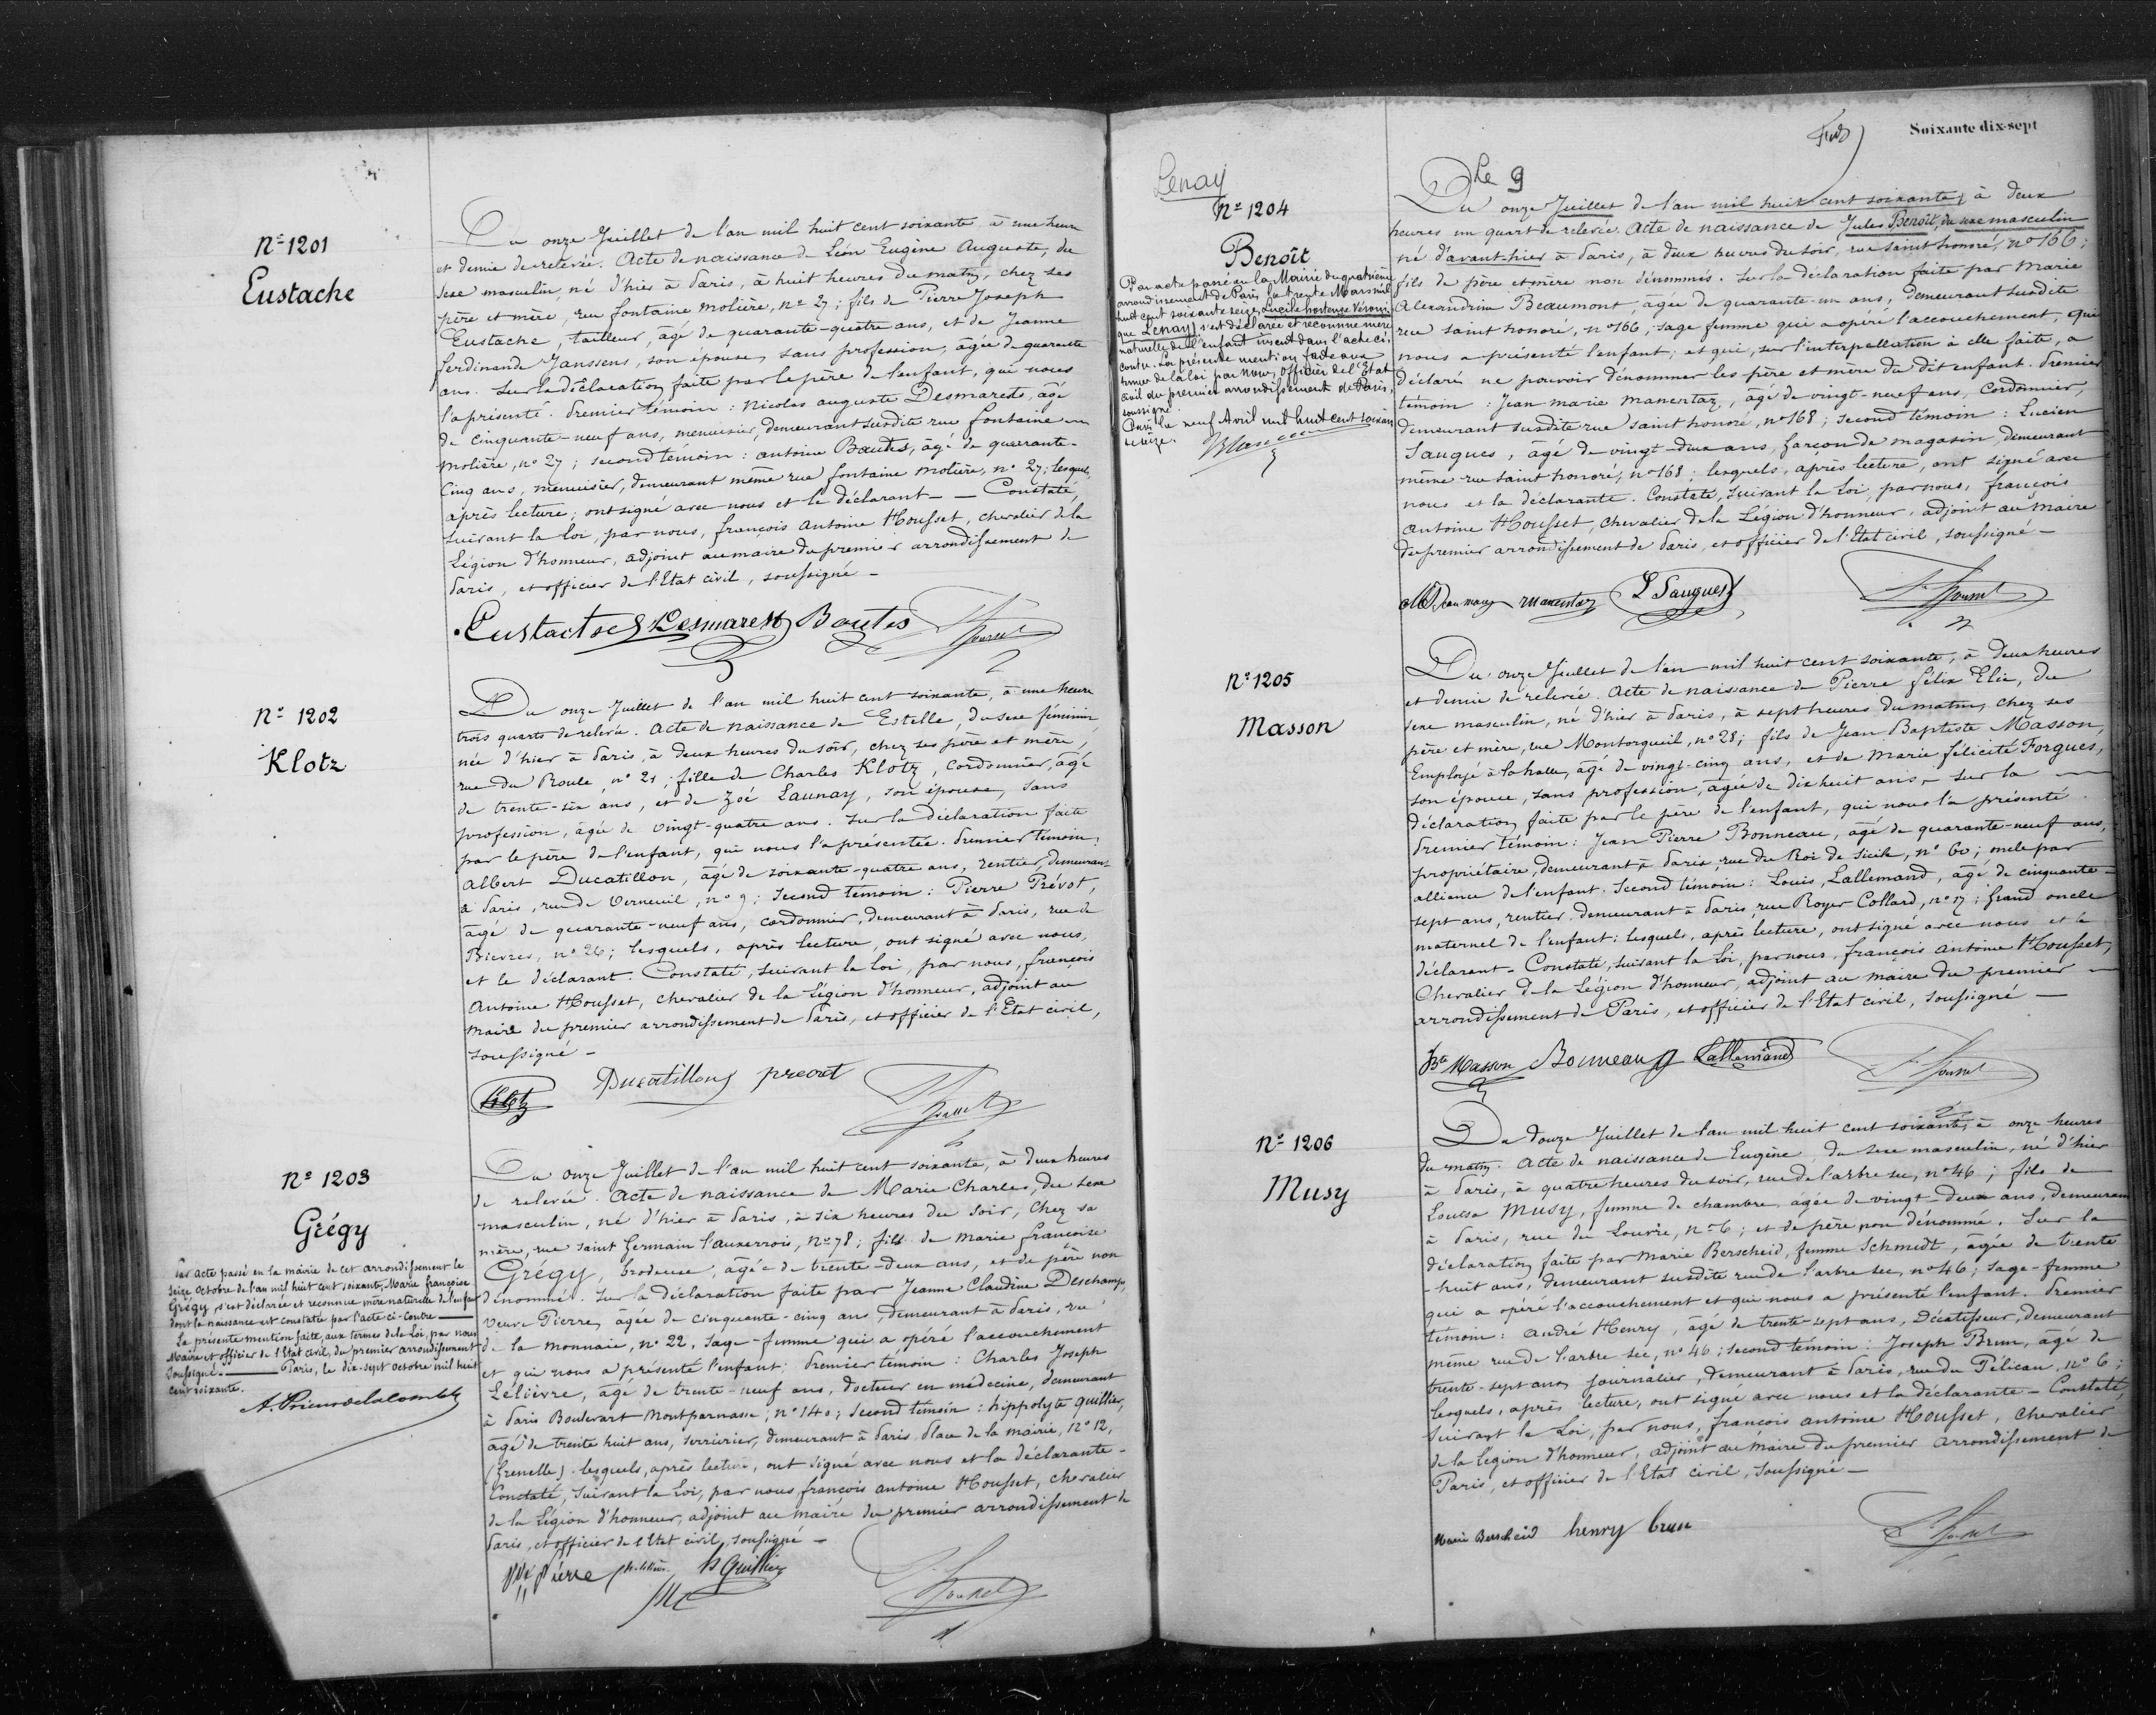 Nº 1201
Eustache
Du onze Juillet de l'an mil huit cent soixante à une heure
et demie de relevée. Acte de naissance de Léon Eugène Auguste, du
sexe masculin, né d'hier à Paris, à huit heures du matin, chez ses
père et mère, rue fontaine molière, nº 27; fils de Pierre Joseph
Eustache, tailleur, âgé de quarante-quatre ans, et de Jeanne
ferdinande Janssens, son épouse, sans profession, âgée de quarante
ans. Sur la déclaration faite par le père de l'enfant, qui nous
l'a présenté. Premier témoin: Nicolas auguste Desmarest, âgé
de cinquante-neuf ans, menuisier, demeurant susdite rue fontaine
molière, nº 27; second temoin: antoine Boutes, âgé de quarante-
cinq ans, menuisier, demeurant même rue fontaine molière, nº 27; lesquels,
après lecture, ont signé avec nous et le déclarant — Constaté,
suivant la loi, par nous, françois antoine Housset, chevalier de la
Légion d'honneur, adjoint au maire du premier arrondissement de
Paris, et officier de l'Etat civil, soussigné —
Eustache Desmarest Boutes
Nº 1202
Klotz
Du onze Juillet de l'an mil huit cent soixante, à une heure
trois quarts de relevée. Acte de naissance de Estelle, du sexe féminin
née d'hier à Paris, à deux heures du soir, chez ses père et mère,
rue du Roule, nº 21; fille de Charles Klotz, cordonnier, âgé
de trente-six ans, et de Zoé Launay, son épouse, sans
profession, âgée de vingt-quatre ans. Sur la déclaration faite
par le père de l'enfant, qui nous l'a présentée. Premier témoin:
Albert Ducatillon, âgé de soixante-quatre ans, rentier, demeurant
à Paris, rue de Verneuil, nº 9; second témoin: Pierre Prévot,
âgé de quarante-neuf ans, cordonnier, demeurant à Paris, rue de
Bievres, nº 26; lesquels, après lecture, ont signé avec nous,
et le déclarant. Constaté, suivant la loi, par nous, françois
Antoine Housset, chevalier de la Légion d'honneur, adjoint au
maire du premier arrondissement de Paris, et officier de l'Etat civil,
soussigné —
Klotz Ducatillon prevot
Nº 1203
Grégy
Par acte passé en la mairie de cet arrondissement le
seize Octobre de l'an mil huit cent soixante, Marie françoise
Grégy s'est déclarée et reconnue mère naturelle de l'enfant
dont la naissance est constatée par l'acte ci-contre —
La présente mention faite, aux termes de la Loi, par nous
Maire et officier de l'Etat civil, du premier arrondissement
soussigné. — Paris, le dix-sept octobre mil huit
cent soixante.
Du onze Juillet de l'an mil huit cent soixante, à deux heures
de relevée. Acte de naissance de Marie Charles, du sexe
masculin, né d'hier à Paris, à six heures du soir, chez sa
mère, rue saint Germain l'auxerrois, nº 78; fils de marie françoise
Grégy, brodeuse, agée de trente-deux ans, et de père non
dénommé. Sur la déclaration faite par Jeanne Claudine Deschamps,
veuve Pierre, âgée de cinquante-cinq ans, demeurant à Paris, rue
de la monnaie, nº 22, sage-femme qui a opéré l'accouchement
et qui nous a présenté l'enfant. Premier temoin: Charles Joseph
Lelièvre, âgé de trente-neuf ans, docteur en médecine, demeurant
à Paris Boulevart Montparnasse, nº 140; second témoin: hippolyte quillier,
âgé de trente huit ans, serrurier, demeurant à Paris place de la mairie, nº 12,
(Grenelle). lesquels, après lecture, ont signé avec nous et la déclarante —
Constaté, suivant la Loi, par nous, françois antoine Housset, chevalier
de la Légion d'honneur, adjoint au maire du premier arrondissement de
Paris, et officier de l'Etat civil, soussigné —
Vve Pierre h Quillier
Soixante dix-sept
Lenay
Nº 1204
Benoît
Par acte passé en la Mairie du quatrième
arrondissement de Paris le trente Mars mil
huit cent soixante seize, Lucile hortense Véroni
que Lenay s'est déclarée et reconnue mère
naturelle de l'enfant inscrit dans l'acte ci-
contre. La présente mention faite aux
termes de la loi par nous, officier de l'Etat
civil du premier arrondissement de Paris,
soussigné.
Paris le neuf Avril mil huit cent soixante
seize.
Le 9
Du onze Juillet de l'an mil huit cent soixante, à deux
heures un quart de relevée. Acte de naissance de Jules Benoît, du sexe masculin
né d'avant-hier à Paris, à deux heures du soir, rue saint honoré, nº 166;
fils de père et mère non dénommés. Sur la déclaration faite par Marie
Alexandrine Beaumont, âgée de quarante-un ans, demeurant susdite
rue saint honoré, nº 166, sage femme qui a opéré l'accouchement, qui
nous a présenté l'enfant, et qui, sur l'interpellation à elle faite, a
déclaré ne pouvoir dénommer les père et mère du dit enfant. Premier
témoin: Jean marie manentaz, âgé de vingt-neuf ans, cordonnier,
demeurant susdite rue saint honoré, nº 168; second témoin: Lucien
Saugues, âgé de vingt-deux ans, garçon de magasin, demeurant
même rue saint honoré, nº 168; lesquels, après lecture, ont signé avec
nous et la déclarante. Constaté, suivant la loi, par nous, françois
Antoine Housset, chevalier de la Légion d'honneur, adjoint au maire
du premier arrondissement de Paris, et officier de l'Etat civil, soussigné —
manentaz L Saugues
Nº 1205
Masson
Du onze Juillet de l'an mil huit cent soixante, à deux heures
et demie de relevée. Acte de naissance de Pierre félix Elie, du
sexe masculin, né d'hier à Paris, à sept heures du matin, chez ses
père et mère, rue Montorgueil, nº 28; fils de Jean Baptiste Masson,
Employé à la halle, âgé de vingt-cinq ans, et de Marie félicité Forgues,
son épouse, sans profession, âgée de dix huit ans. — Sur la
déclaration faite par le père de l'enfant, qui nous l'a présenté
Premier témoin: Jean Pierre Bonneau, âgé de quarante-neuf ans,
propriétaire, demeurant à Paris, rue du Roi de Sicile, nº 60; oncle par
alliance de l'enfant. Second témoin: Louis, Lallemand, âgé de cinquante-
sept ans, rentier, demeurant à Paris, rue Royer Collard, nº 17; Grand oncle
maternel de l'enfant: lesquels, après lecture, ont signé avec nous et le
déclarant — Constaté, suivant la Loi, par nous, françois antoine Housset,
Chevalier de la Légion d'honneur, adjoint au maire du premier
arrondissement de Paris, et officier de l'Etat civil, soussigné —
Bte Masson Bonneau Lallemand
Nº 1206
Musy
Du douze Juillet de l'an mil huit cent soixante, à onze heures
du matin. Acte de naissance de Eugène, du sexe masculin, né d'hier
à Paris, à quatre heures du soir, rue de l'arbre sec, nº 46; fils de
Louisa Musy, femme de chambre, âgée de vingt-deux ans, demeurant
à Paris, rue du Louvre, nº 6; et de père non dénommé. Sur la
déclaration faite par Marie Berscheid, femme Schmidt, âgée de trente
-huit ans, demeurant susdite rue de l'arbre sec, nº 46; sage-femme
qui a opéré l'accouchement et qui nous a présenté l'enfant. Premier
témoin: André Henry, âgé de trente-sept ans, Décatisseur, demeurant
même rue de l'arbre sec, nº 46; second témoin: Joseph Brun, âgé de
trente-sept ans, journalier, demeurant à Paris, rue du Pélican, nº 6;
lesquels, après lecture, ont signé avec nous et la déclarante — Constaté,
suivant la Loi, par nous, françois antoine Housset, chevalier
de la Légion d'honneur, adjoint au maire du premier arrondissement de
Paris, et officier de l'Etat civil, soussigné —
Marie Berscheid henry brun